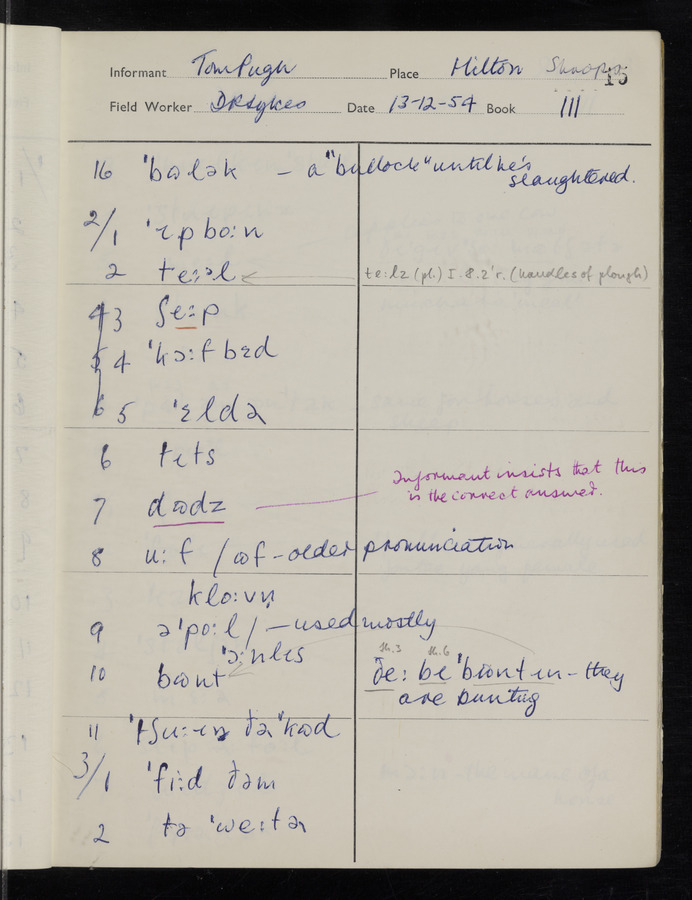 Informant Tom Pugh Place Hilton Shrops.
15
Field Worker DRSykes Date 13-12-54 Book III
16 ˈbɷlək – a "bullock" until he's
slaughtered.
2/1 ˈɛpbɔːn
2 teːəl teːlz (pl.) I.8.2ʳ. (handles of plough)
4 3 ʃeːp
5 4 ˈkɔːfbɛd
6 5 ˈɛldə
6 tɪts
7 dɷdz Informant insists that this
is the correct answer.
8 uːf / ɷf – older pronunciation
kloːvn̩
9 əˈpoːl / – used mostly
ˈɔːnlɛs
10 bɷnt ðeː be ˈbɷntɪn – they
are bunting
11 ˈtʃuːɪn ðəˈkɷd
3/1 ˈfiːd ðəm
2 tə ˈweːtə